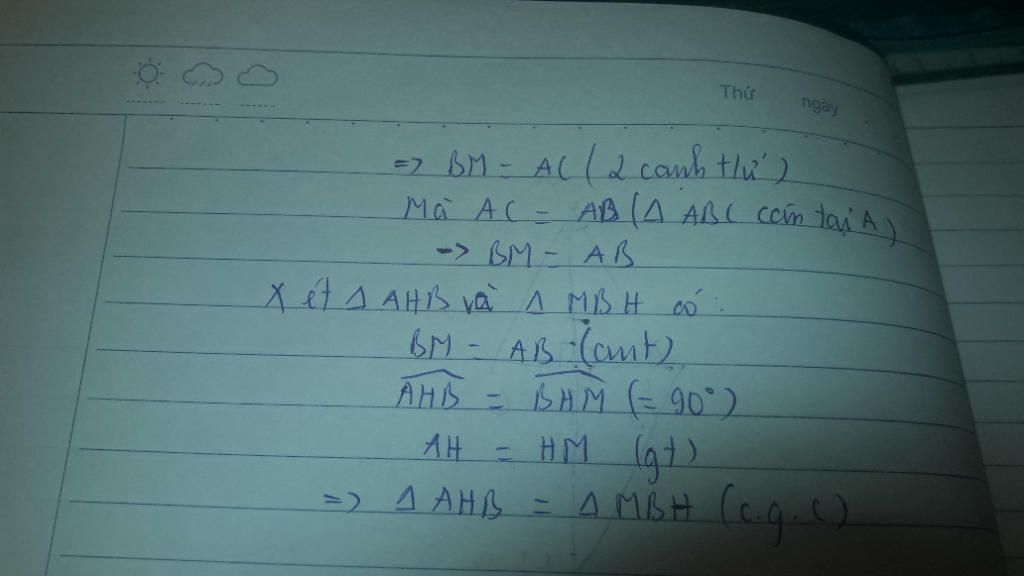 Thứ ngày
=> BM = AC (2 cạnh t/ứ)
Mà AC = AB (Δ ABC cân tại A)
-> BM = AB
Xét Δ AHB và Δ MBH có:
BM = AB (cmt)
AHB = BHM (= 90°)
AH = HM (gt)
=> Δ AHB = Δ MBH (c.g.c)